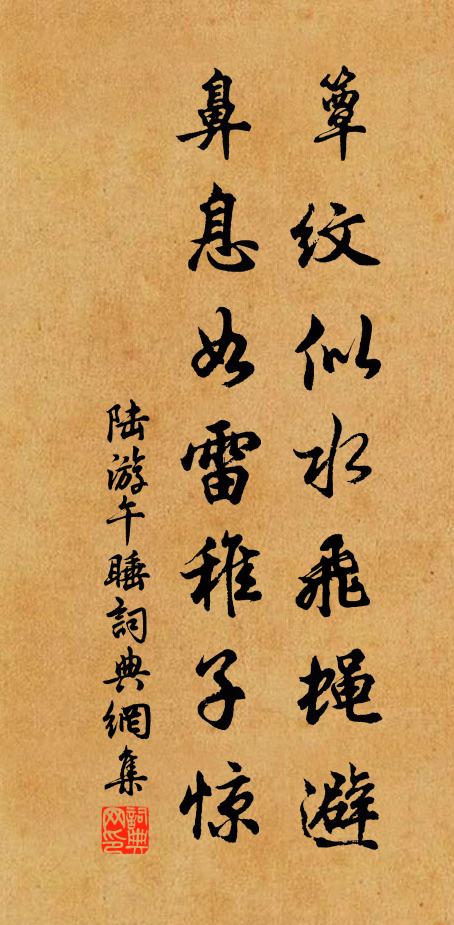 簟纹似水飛蝇避
鼻息如雷稚子惊
陆游午睡詞典網集
詞典网印